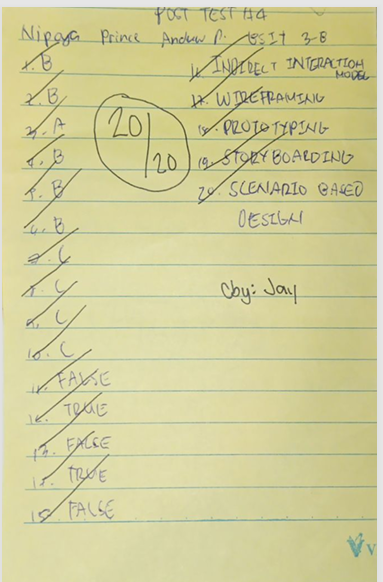 POST TEST #4
Nipaya Prince Andrew P. BSIT 3-8
1. B
2. B
3. A
4. B
5. B
6. B
7. C
8. C
9. C
10. C
11. FALSE
12. TRUE
13. FALSE
14. TRUE
15. FALSE
16. INDIRECT INTERACTION
MODEL
17. WIREFRAMING
18. PROTOTYPING
19. STORYBOARDING
20. SCENARIO BASED
DESIGN
20/20
Cby: Jay
V